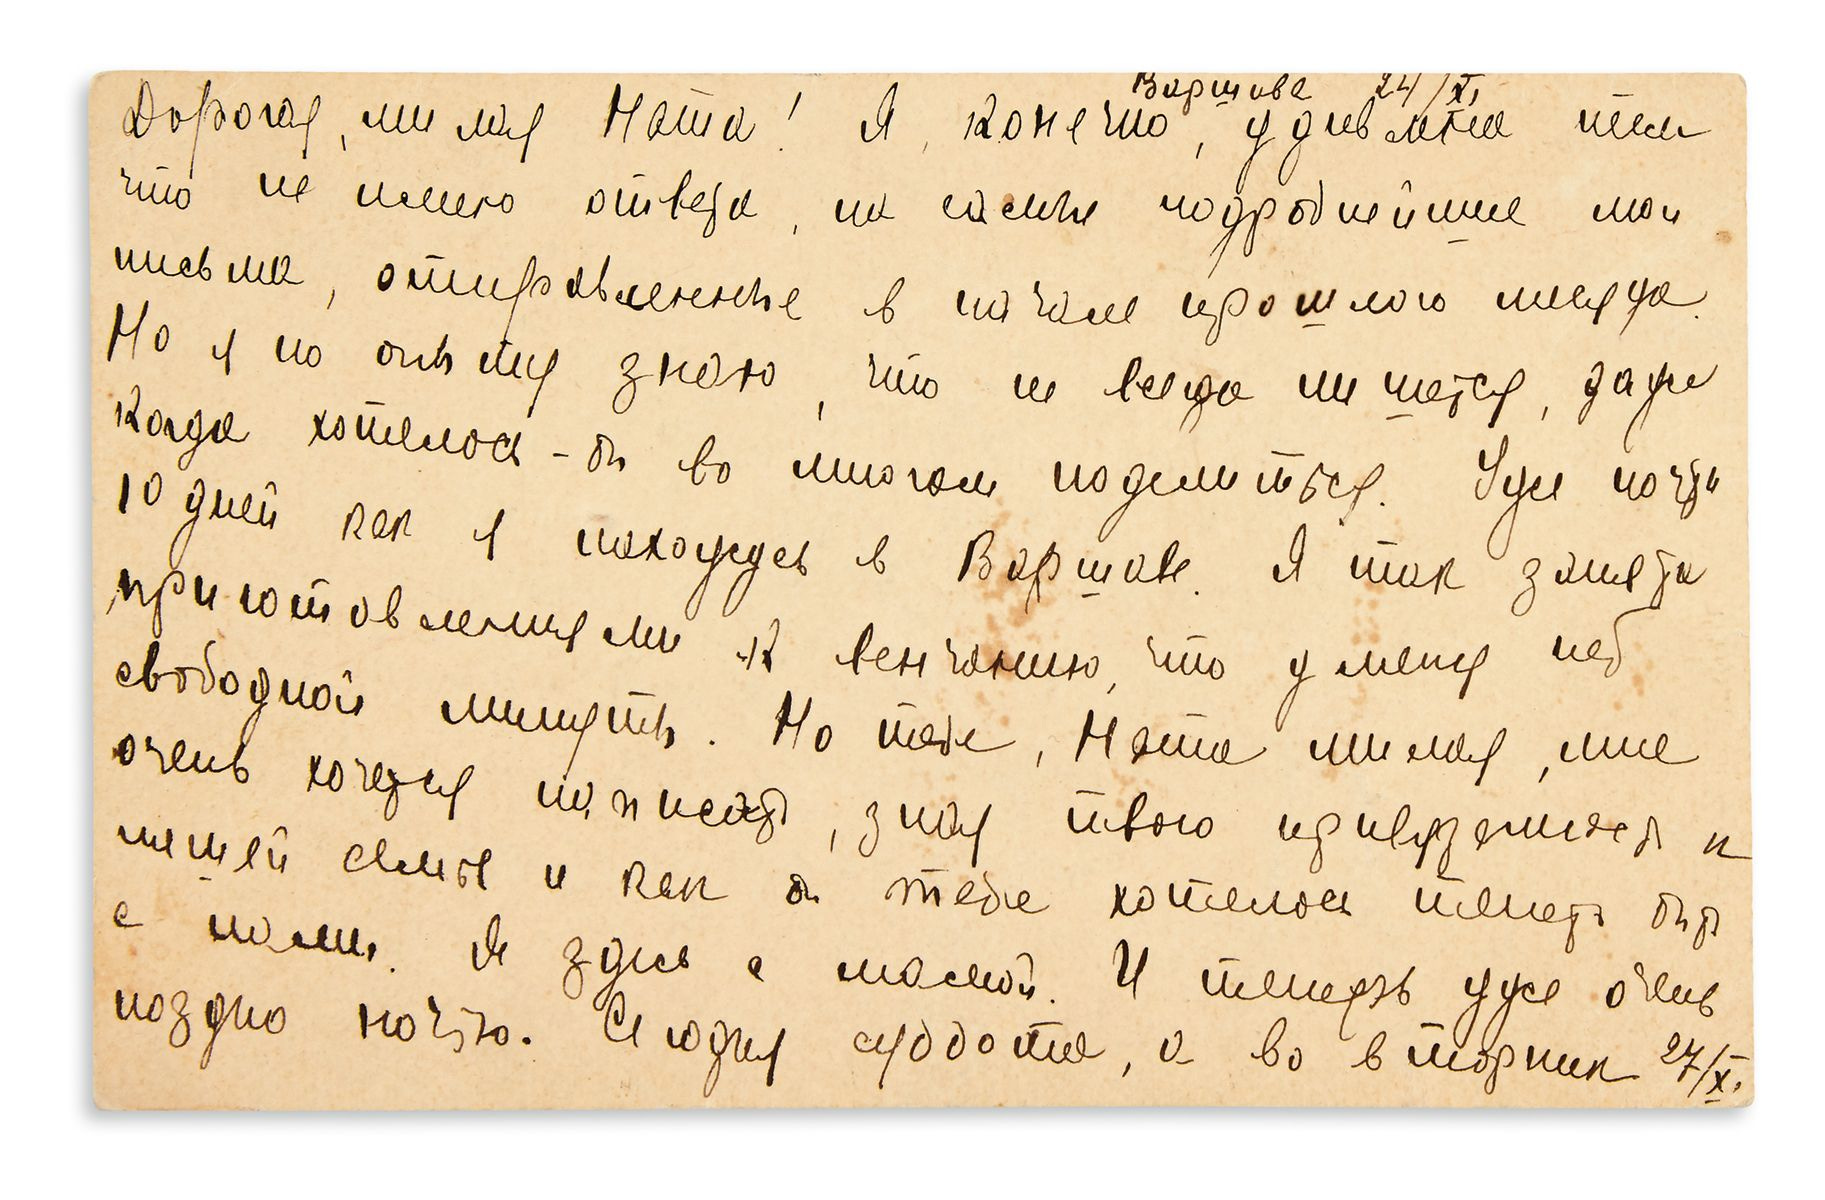 Варшава 24/XI.
Дорогая, милая Ната! Я, конечно, удивлена тем
что не имею ответа, на самые подробнейшие мои
письма, отправленные в начале прошлого месяца.
Но я по опыту знаю, что не всегда пишется, даже
когда хотелось-бы во многом поделиться. Уже почти
10 дней как я нахожусь в Варшаве. Я так занята
приготовлениями к венчанию, что у меня неб
свободной минуты. Но тебе, Ната милая, мне
очень хочется написать, зная твою привязанность к
нашей семье и как бы тебе хотелось теперь быть
с нами. Я здесь с мамой. И теперь уже очень
поздно ночью. Сегодня суббота, а во вторник 27/XI.